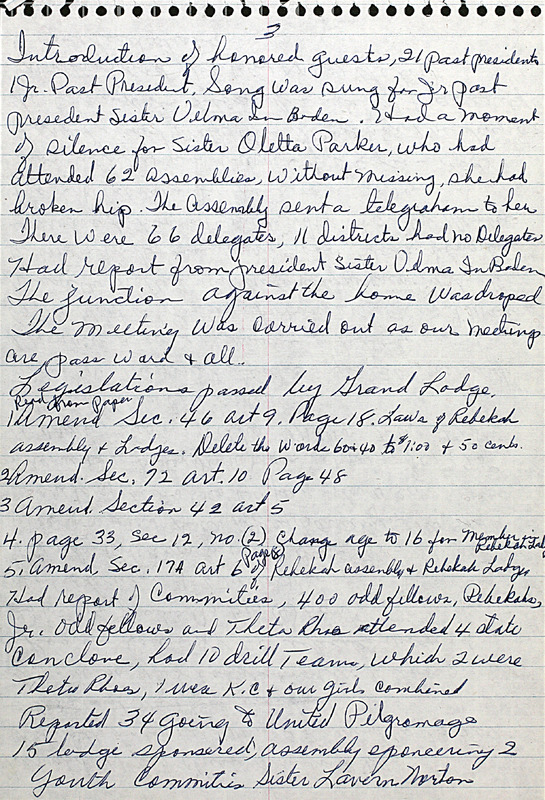 3
Introduction of honored guests, 21 past presidents
1 Jr. Past President, Song was sung for Jr past
presedent Sister Velma In Boden. Had a moment
of silence for Sister Oletta Parker, who had
attended 62 assemblies, without missing, she had
broken hip. The assembly sent a telegraham to her
There were 66 delegates, 11 districts had no Delegates
Had report from president Sister Velma In Boden
The junction against the home was droped
The meeting was carried out as our meetings
are, pass word & all..
Legislations passed by Grand Lodge.
Read from paper
1 Amend Sec. 46 art 9. Page 18. Laws of Rebekah
assembly & Lodges. Delete the words 60:40 to $1:00 + 50 cents.
2 Amend. Sec. 72 art. 10 Page 48
3 Amend. Section 42 art 5
4. page 33, Sec 12, no. (2) Change age to 16 for Member in Rebekah Lodge
5. Amend, Sec. 17A art 6 Page 8 of Rebekah assembly & Rebekah Lodge
Had report of Committies, 400 odd fellows, Rebekahs,
Jr. odd fellows and Theta Rhos attended 4 state
conclove, had 10 drill Teams, which 2 were
Theta Rhoes, 1 was K.C & our girls combined
Reported 34 going to United Pilgromage
15 lodge sponsered, assembly sponeering 2
Youth Committies Sister Lavern Norton